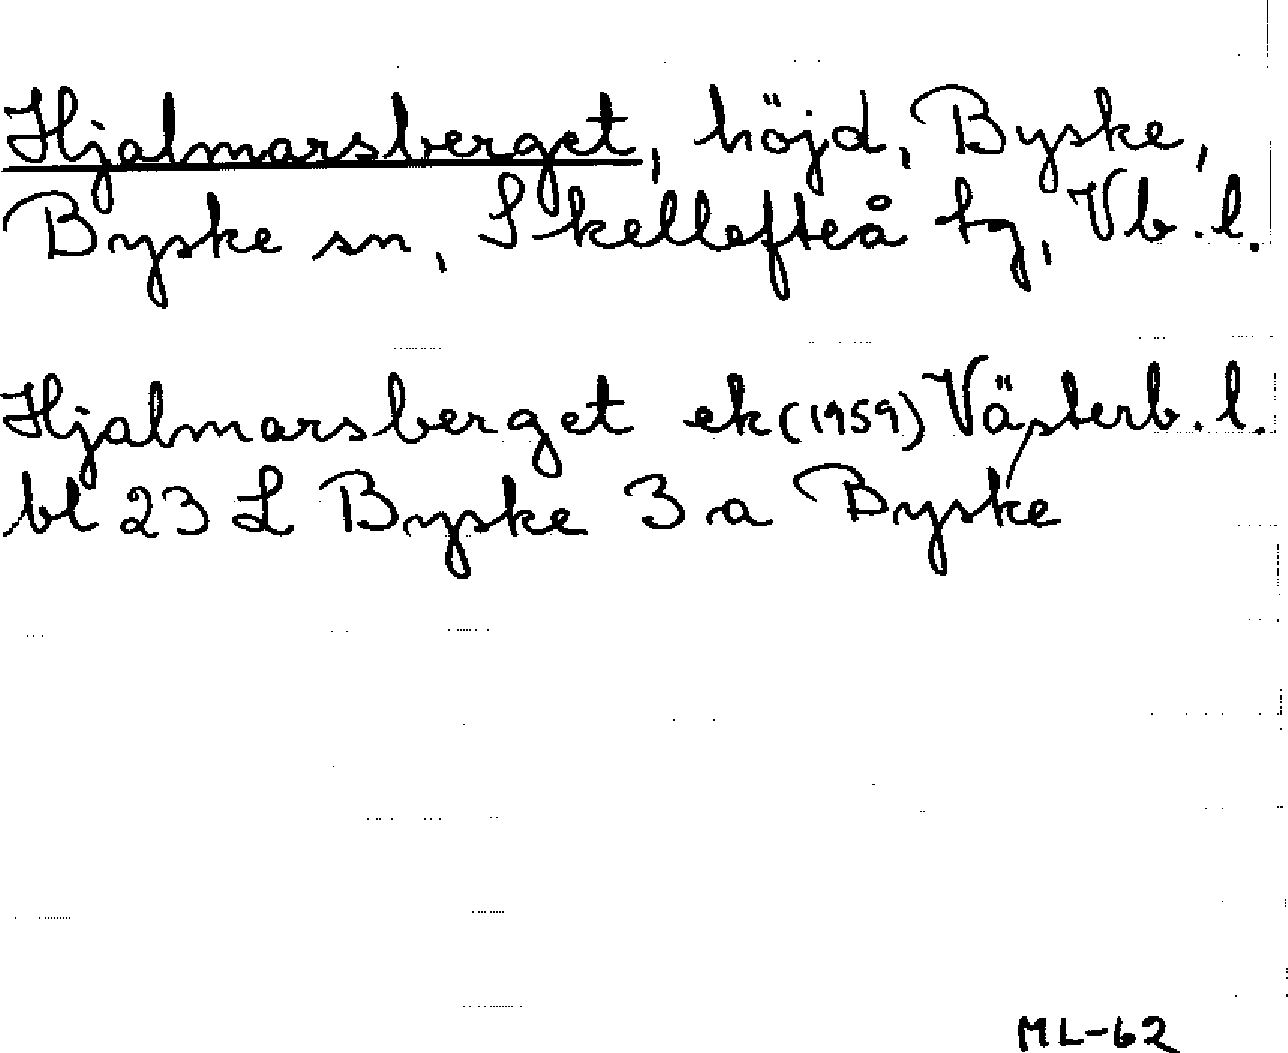 Hjalmarsberget, höjd, Byske,
Byske sn, Skellefteå tg, Vb.l.
Hjalmarsberget ek(1959) Västerb.l.
bl 23 L Byske 3 a Byske
ML-62